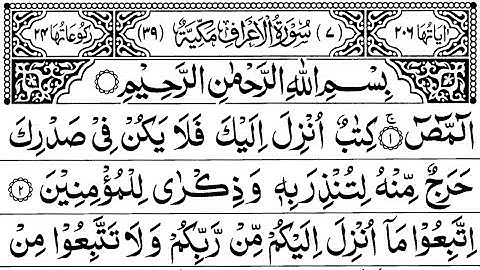 اٰيَاتُهَا ٢٠٦ (٧) سُوْرَةُ الْاَعْرَافِ مَكِّيَّةٌ (٣٩) رُكُوْعَاتُهَا ٢٤
بِسْمِ اللّٰهِ الرَّحْمٰنِ الرَّحِيْمِ
الٓمّٓصٓ ۚ ١ كِتٰبٌ اُنْزِلَ اِلَيْكَ فَلَا يَكُنْ فِيْ صَدْرِكَ
حَرَجٌ مِّنْهُ لِتُنْذِرَ بِهٖ وَذِكْرٰى لِلْمُؤْمِنِيْنَ ٢
اِتَّبِعُوْا مَاۤ اُنْزِلَ اِلَيْكُمْ مِّنْ رَّبِّكُمْ وَلَا تَتَّبِعُوْا مِنْ